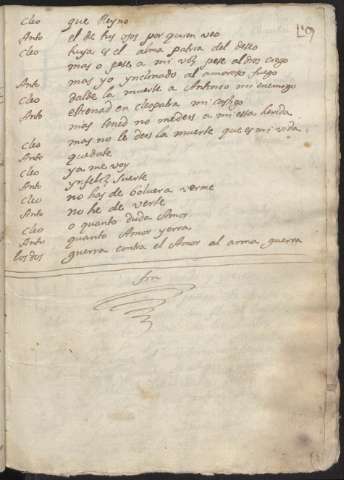 Cleo que Reyno
Anto el de tus ojos por quien veo
Cleo huya es el alma patria del deseo
mas o pese a mi voz pese al dios ciego
Anto mas yo ynclinado al amoroso fuego
Cleo dalde la muerte a Antonio mi enemigo
Anto estrenad en cleopatra mi castigo
mas tened no me deis a mi esta herida
Cleo mas no le deis la muerte que es mi vida
Anto quedate
Cleo ya me voy
Anto ynfeliz suerte
Cleo no has de bolver a verme
Anto no he de verte
Cleo o quanto duda Amor
Anto quanto Amor yerra
los dos guerra contra el Amor al arma guerra
fin